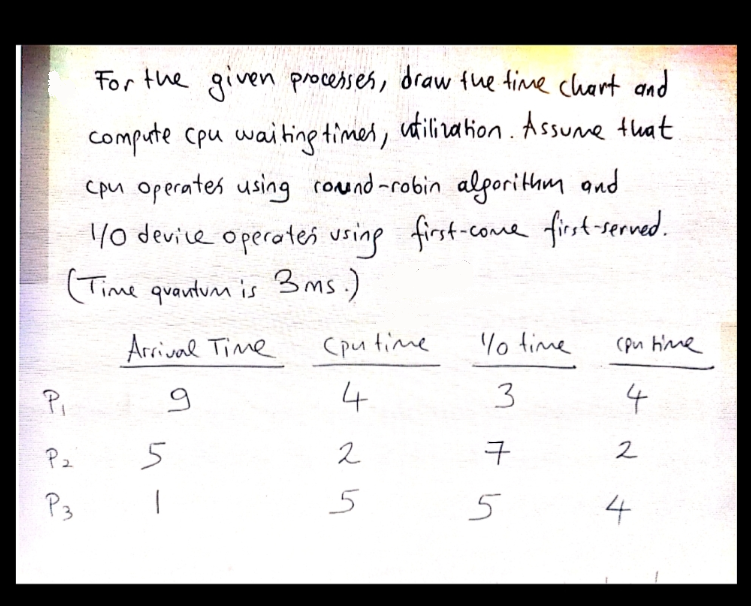 For the given processes, draw the time chart and
compute cpu waiting times, utilization. Assume that
cpu operates using round-robin algorithm and
I/O device operates using first-come first-served.
(Time quantum is 3ms.)
Arrival Time cpu time I/O time cpu time
P1 9 4 3 4
P2 5 2 7 2
P3 1 5 5 4